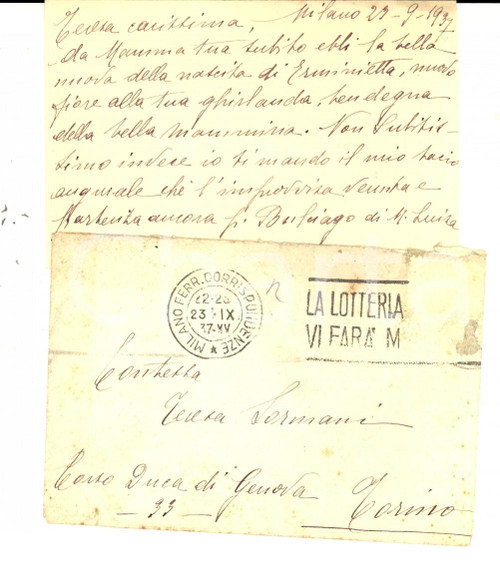 Teresa carissima, Milano 23-9-1937
da Mamma tua subito ebbi la bella
nuova della nascita di Erminietta, nuovo
fiore alla tua ghirlanda, ben degna
della bella mammina. Non subitis-
simo invece io ti mando il mio bacio
augurale chè l'improvvisa venuta e
partenza ancora p. Busnago di M. Luisa
MILANO FERR. CORRISPONDENZE
22-23
23 IX
37-XV
LA LOTTERIA
VI FARA' M
Contessa
Teresa Lormani
Corso Duca di Genova
33
Torino